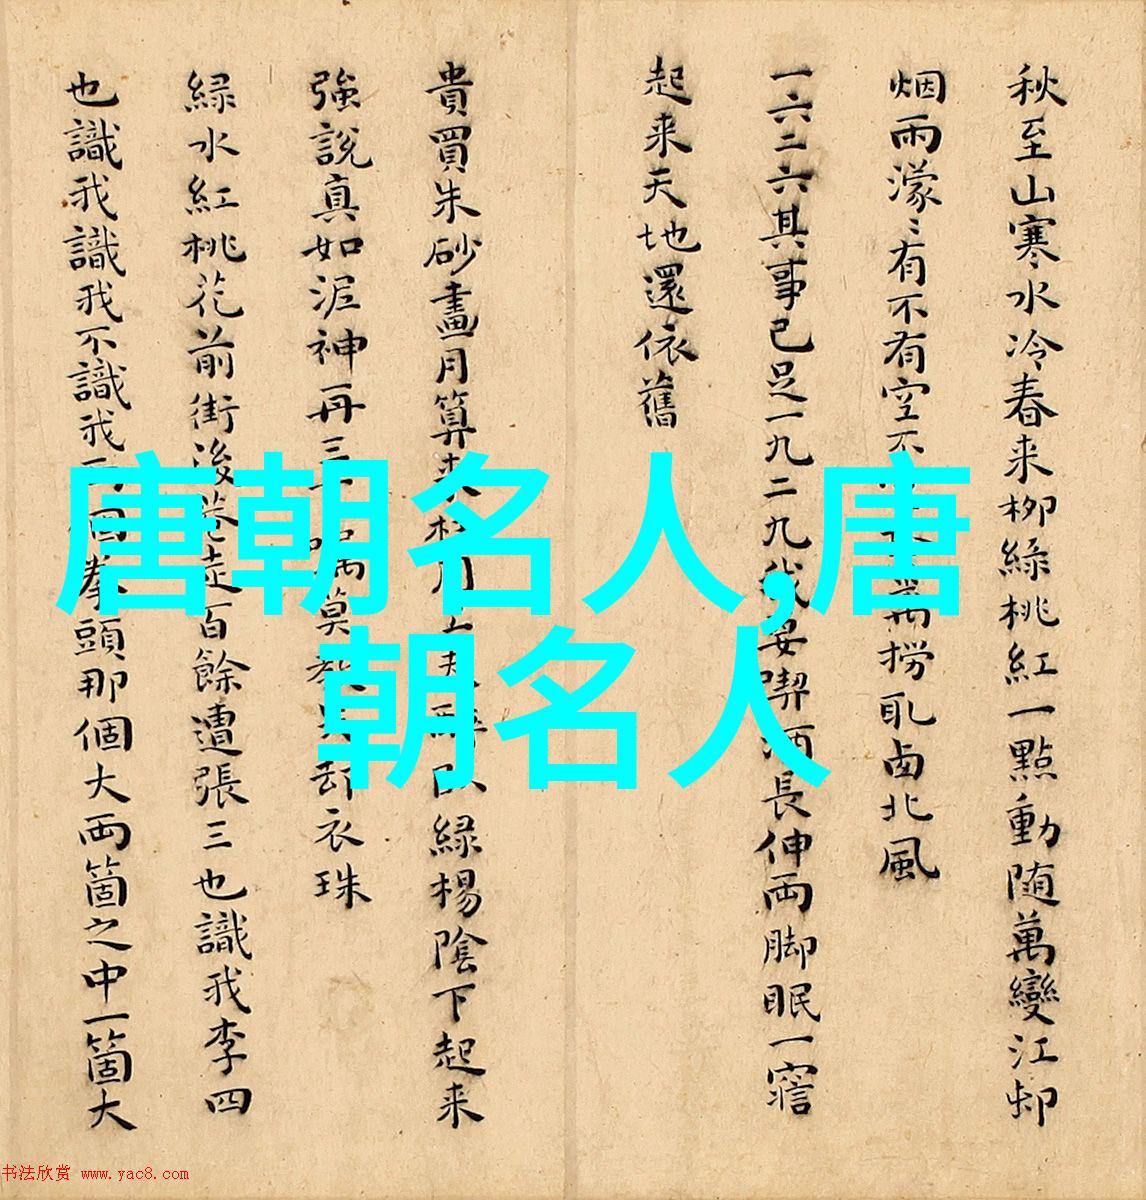 秋至山寒水冷春来柳綠桃紅一點動随萬變江邨
烟雨濛〻有不有空不 撈取卤北風
一六二六其事已足一九二九我要喫酒長伸両脚眠一寤
起来天地還依舊
貴買朱砂畫月算来 緑楊陰下起来
強說真如泥神再三 莫教 却衣珠
緑水紅桃花前街後巷走百餘遭張三也識我李四
也識我識我不識我 個拳頭那個大両箇之中一箇大
唐朝名人,唐
朝名人
书法欣赏 www.yac8.com